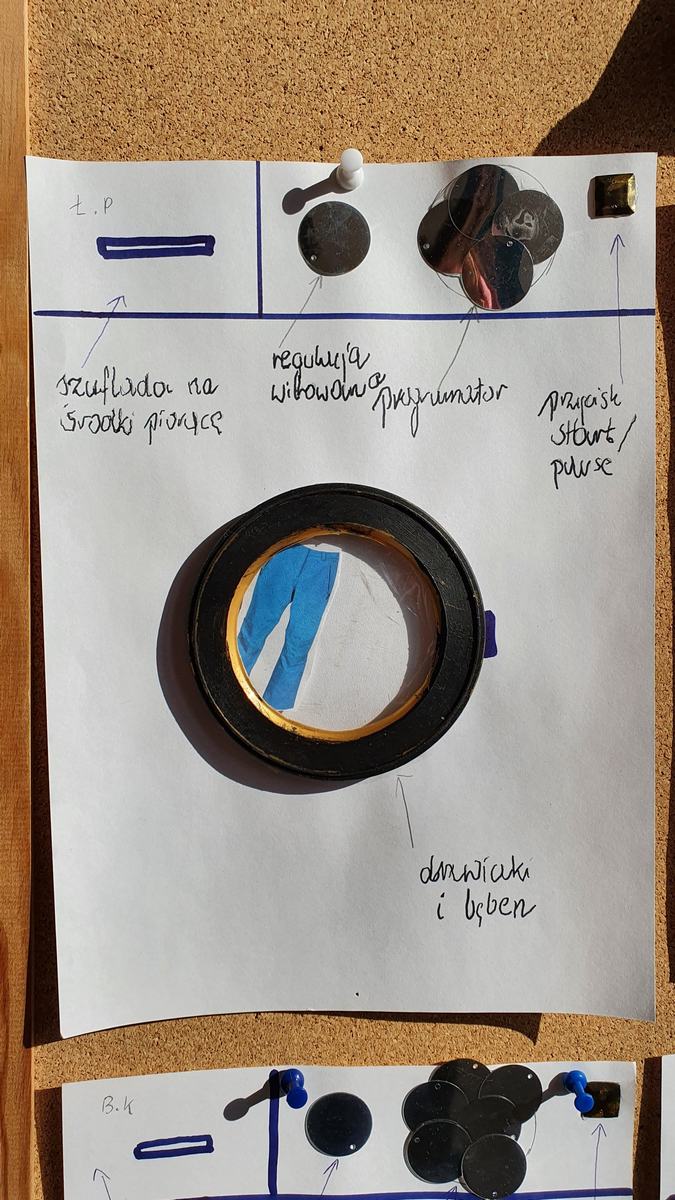 Ł.P
szuflada na
środki piorące
regulacja
wirowania
programator
przycisk
start/
pause
drzwiczki
i bęben
B.K